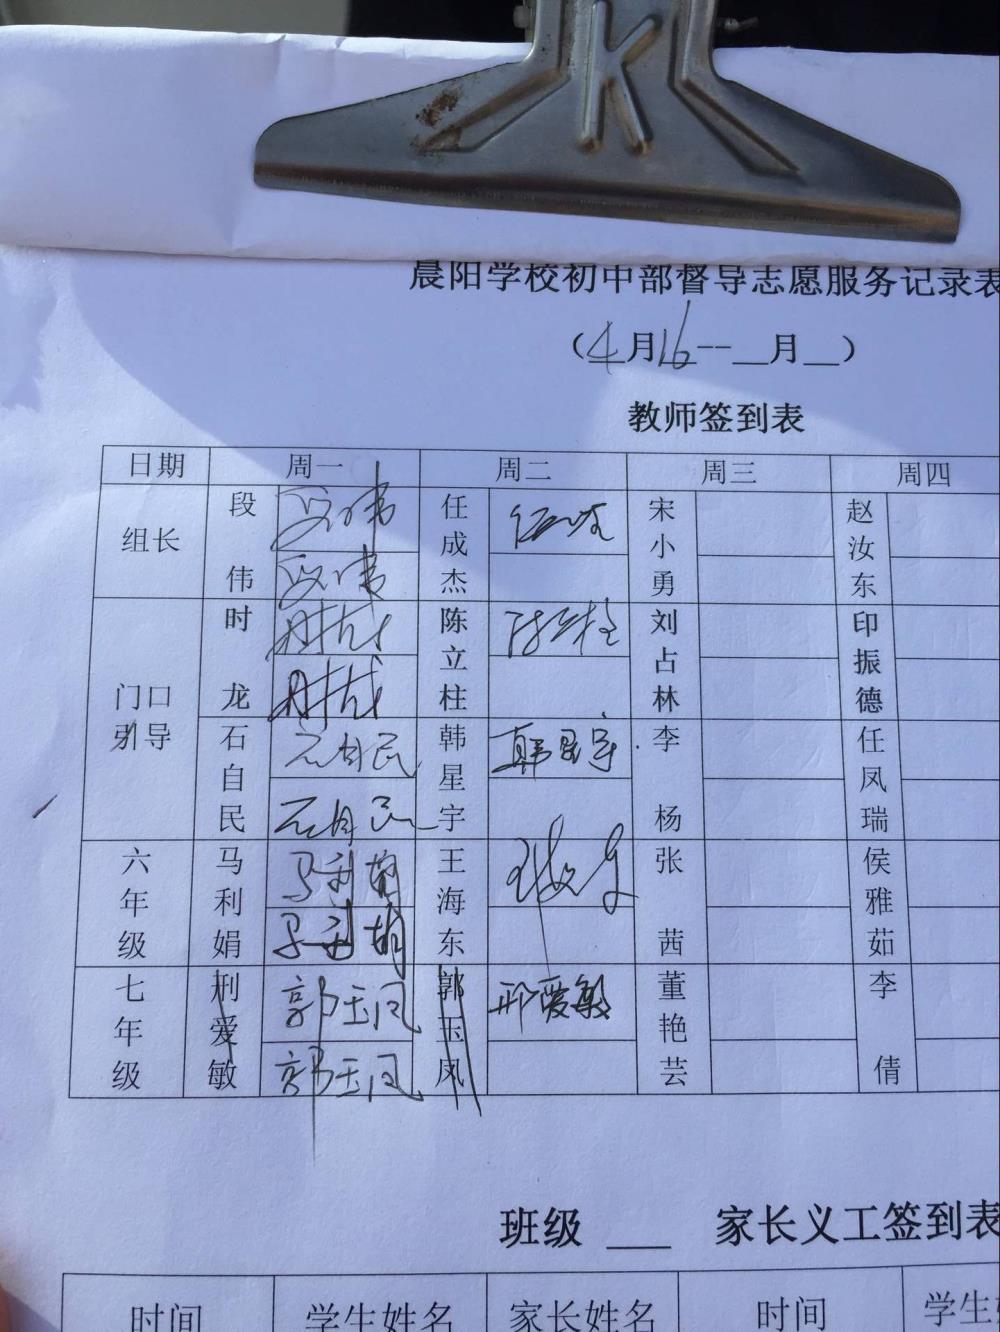 K
晨阳学校初中部督导志愿服务记录表
（4月16--__月__）
教师签到表
日期 周一 周二 周三 周四
组长 段伟 段伟 段伟 任成杰 宋小勇 赵汝东
门口引导 时龙 时龙 时龙 陈立柱 陈立柱 刘占林 印振德
石自民 石自民 石自民 韩星宇 韩星宇 李杨 任凤瑞
六年级 马利娟 马利娟 马利娟 王海东 张茜 侯雅茹
七年级 刑爱敏 郭玉凤 郭玉凤 郭玉凤 邢爱敏 董艳芸 李倩
班级 ___ 家长义工签到表
时间 学生姓名 家长姓名 时间 学生